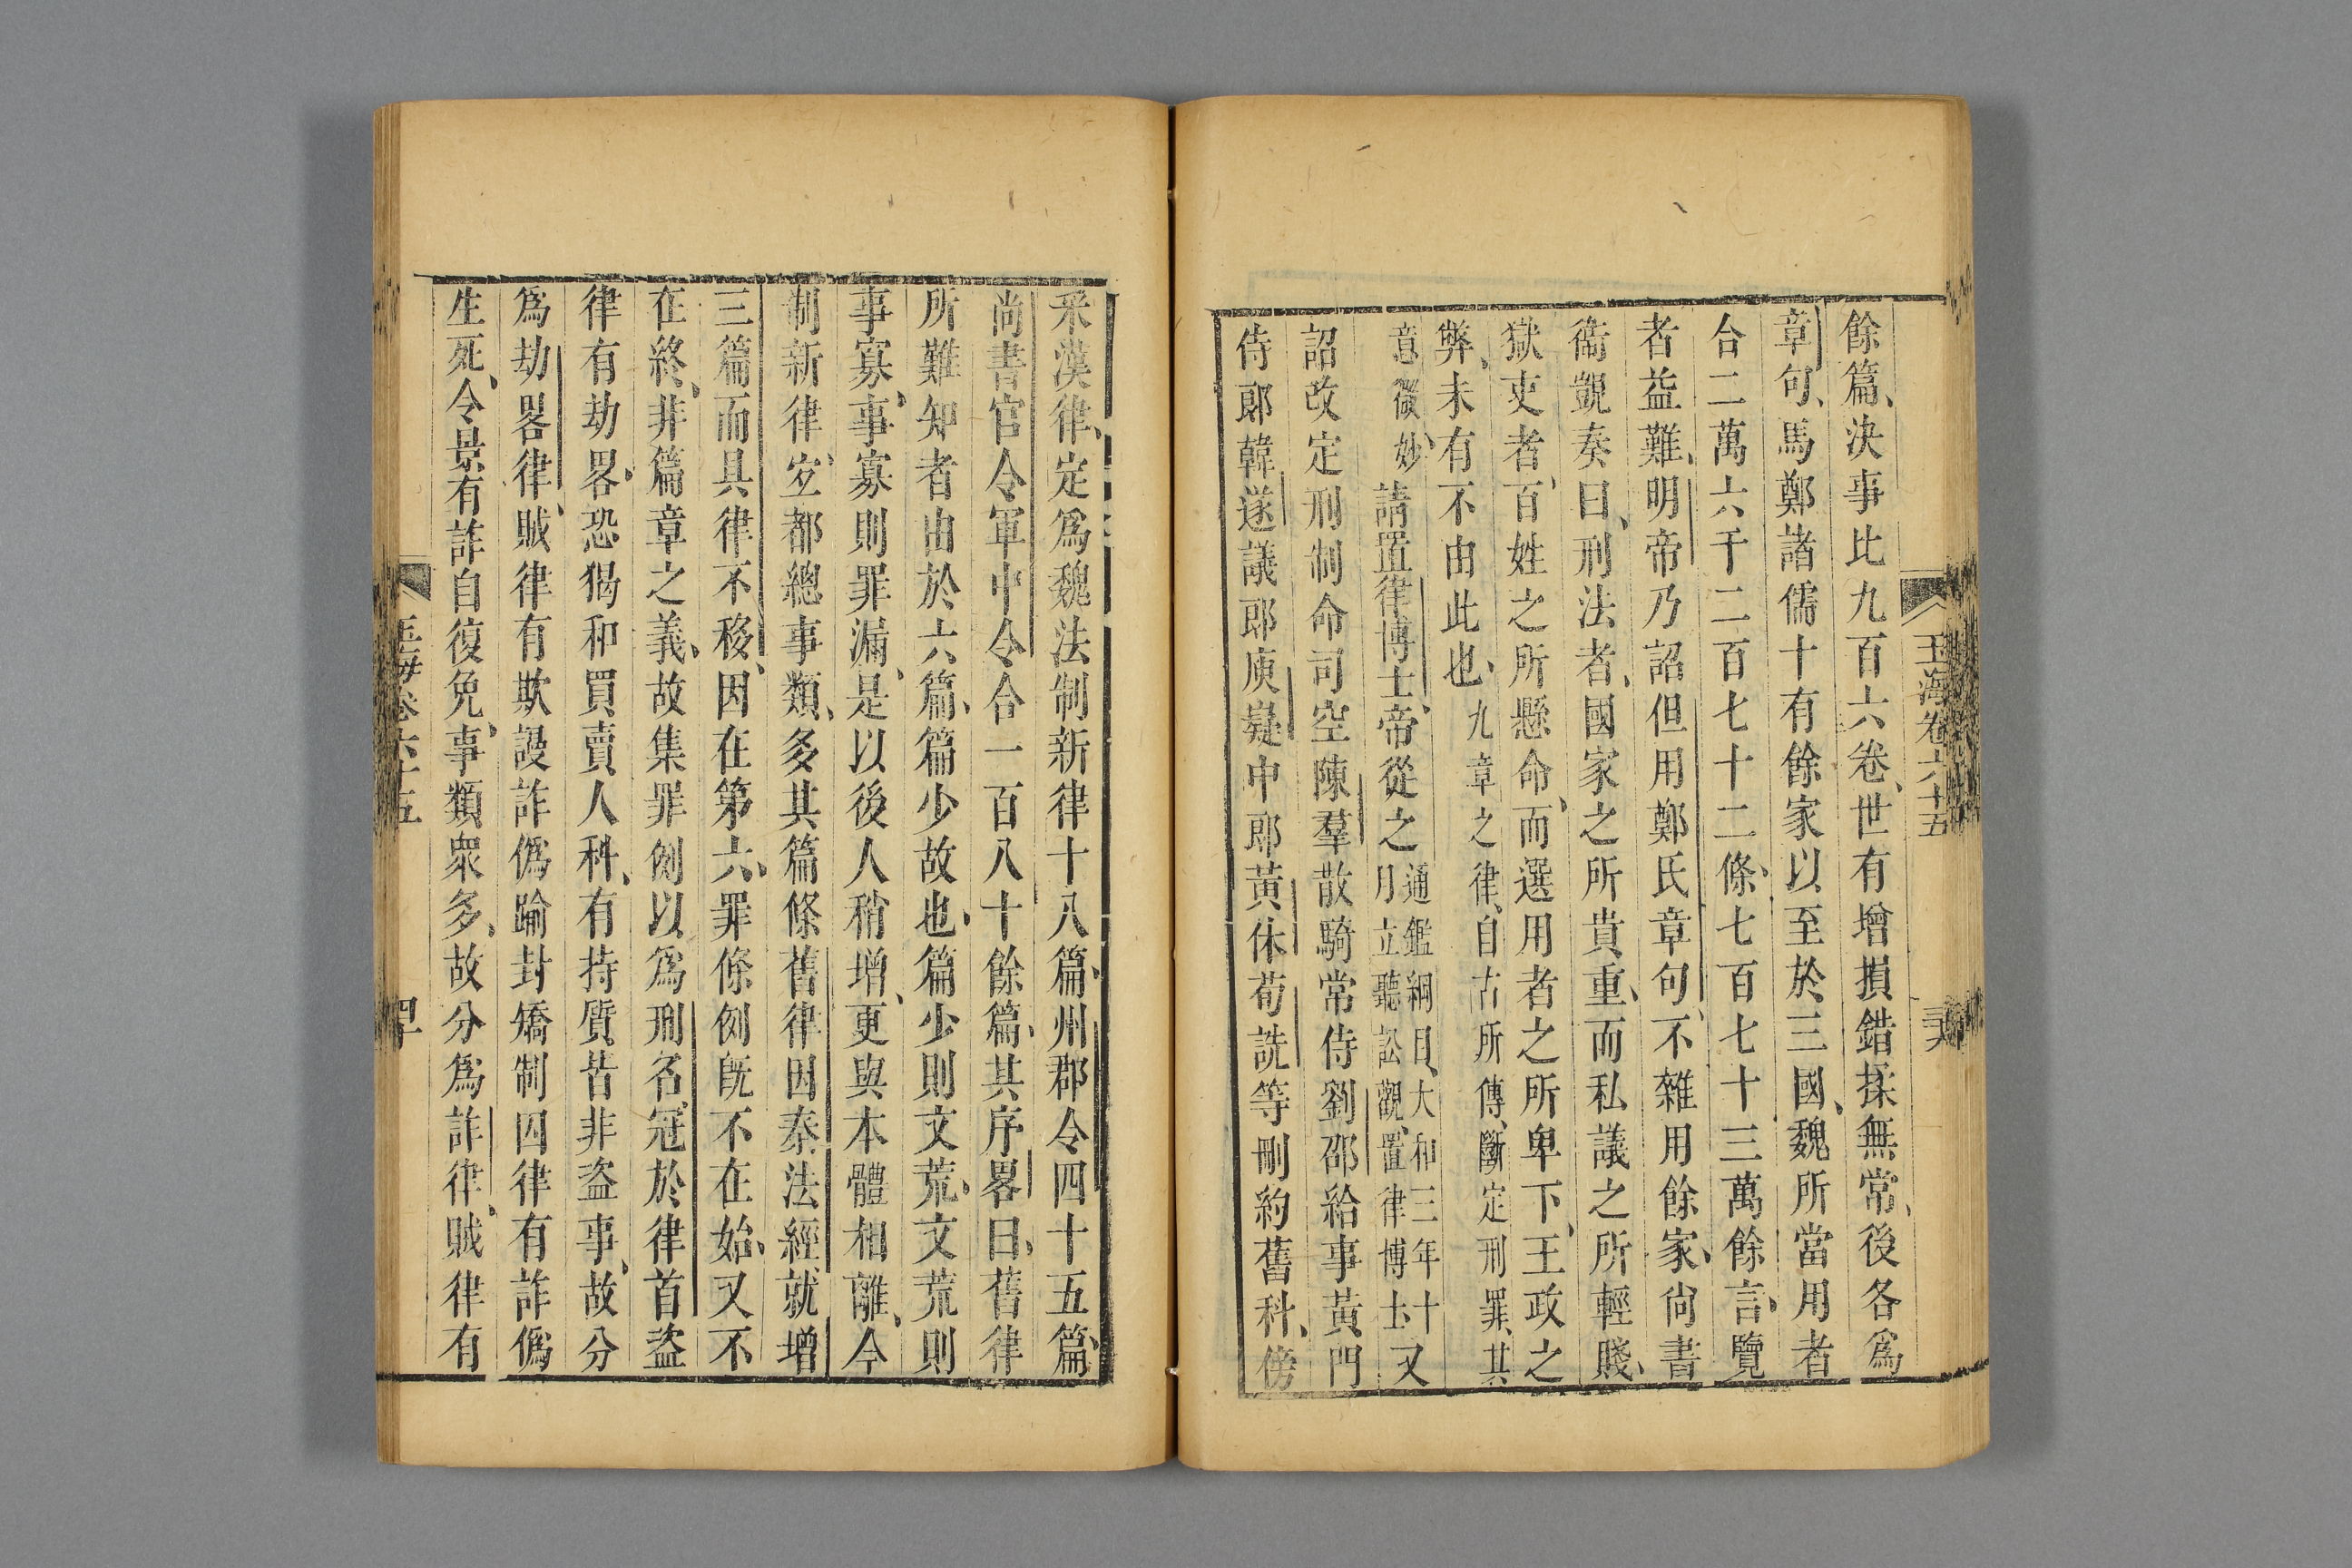 玉海卷六十五
餘篇、決事比九百六卷、世有增損錯揉無常、後各爲
章句、馬鄭諸儒十有餘家以至於三國、魏所當用者
合二萬六千二百七十二條、七百七十三萬餘言、覽
者益難、明帝乃詔但用鄭氏章句、不雜用餘家、尙書
衞覬奏曰、刑法者、國家之所貴重、而私議之所輕賤、
獄吏者、百姓之所懸命、而選用者之所卑下、王政之
弊、未有不由此也、九章之律、自古所傳、斷定刑罪、其
意微妙、請置律博士、帝從之通鑑綱目、大和三年十
月立聽訟觀、置律博士又
詔改定刑制命司空陳羣散騎常侍劉邵給事黃門
侍郞韓遂議郎庾嶷中郎黃休荀詵等刪約舊科、傍
釆漢律、定爲魏法制新律十八篇、州郡令四十五篇、
尚書官令軍中令合一百八十餘篇、其序畧曰、舊律
所難知者由於六篇、篇少故也、篇少則文荒、文荒則
事寡、事寡則罪漏、是以後人稍增、更與本體相離、今
制新律、宐都總事類、多其篇條舊律因秦法經、就增
三篇而具律不移、因在第六、罪條例旣不在始、又不
在終、非篇章之義、故集罪例以爲刑名、冠於律首盜
律有劫畧、恐猲和買賣人科、有持質皆非盜事、故分
爲劫畧律、賊律有欺謾詐僞踰封矯制囚律有詐僞
生死、令景有詐自復免、事類衆多、故分爲詐律、賊律有
玉海卷六十五